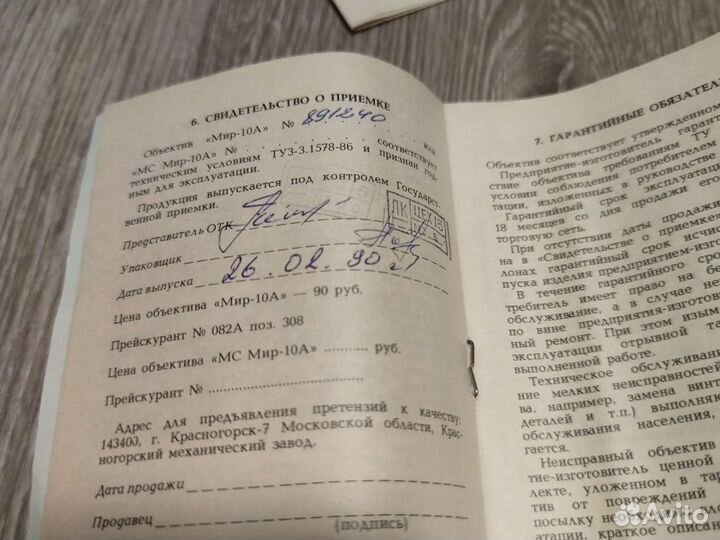 6. СВИДЕТЕЛЬСТВО О ПРИЕМКЕ
Объектив «Мир-10А» № 891240 или
«МС Мир-10А» № . . . . . . . . . . соответствует
техническим условиям ТУ3-3.1578-86 и признан год-
ным для эксплуатации.
Продукция выпускается под контролем Государст-
венной приемки.
Представитель ОТК
Упаковщик
Дата выпуска 26.02.90 г.
Цена объектива «Мир-10А» — 90 руб.
Прейскурант № 082А поз. 308
Цена объектива «МС Мир-10А» ............ руб.
Прейскурант № ......................
Адрес для предъявления претензий к качеству:
143400, г. Красногорск-7 Московской области, Крас-
ногорский механический завод.
Дата продажи
Продавец
(подпись)
ЦЕХ 15
7. ГАРАНТИЙНЫЕ ОБЯЗАТЕЛ
Объектив соответствует утвержденном
Предприятие-изготовитель гарант
ствие объектива требованиям ТУ
условии соблюдения потребителем
тации, изложенных в руководстве
Гарантийный срок эксплуатаци
18 месяцев со дня продажи его
торговую сеть.
При отсутствии даты продажи
на в «Свидетельстве о приемке
лонах гарантийный срок исчис
пуска изделия предприятием-изго
В течение гарантийного сро
требитель имеет право на бе
обслуживание, а в случае не
по вине предприятия-изгото
ный ремонт. При этом изым
эксплуатации отрывной та
выполненной работе.
Техническое обслуживани
ние мелких неисправностей
ва, например, замена винт
деталей и т.п.) выполняю
обслуживания населения,
гается.
Неисправный объектив
тие-изготовитель ценной
лекте, уложенном в тар
тив от повреждений
посылку необходимо
атации, краткое описан
Avito